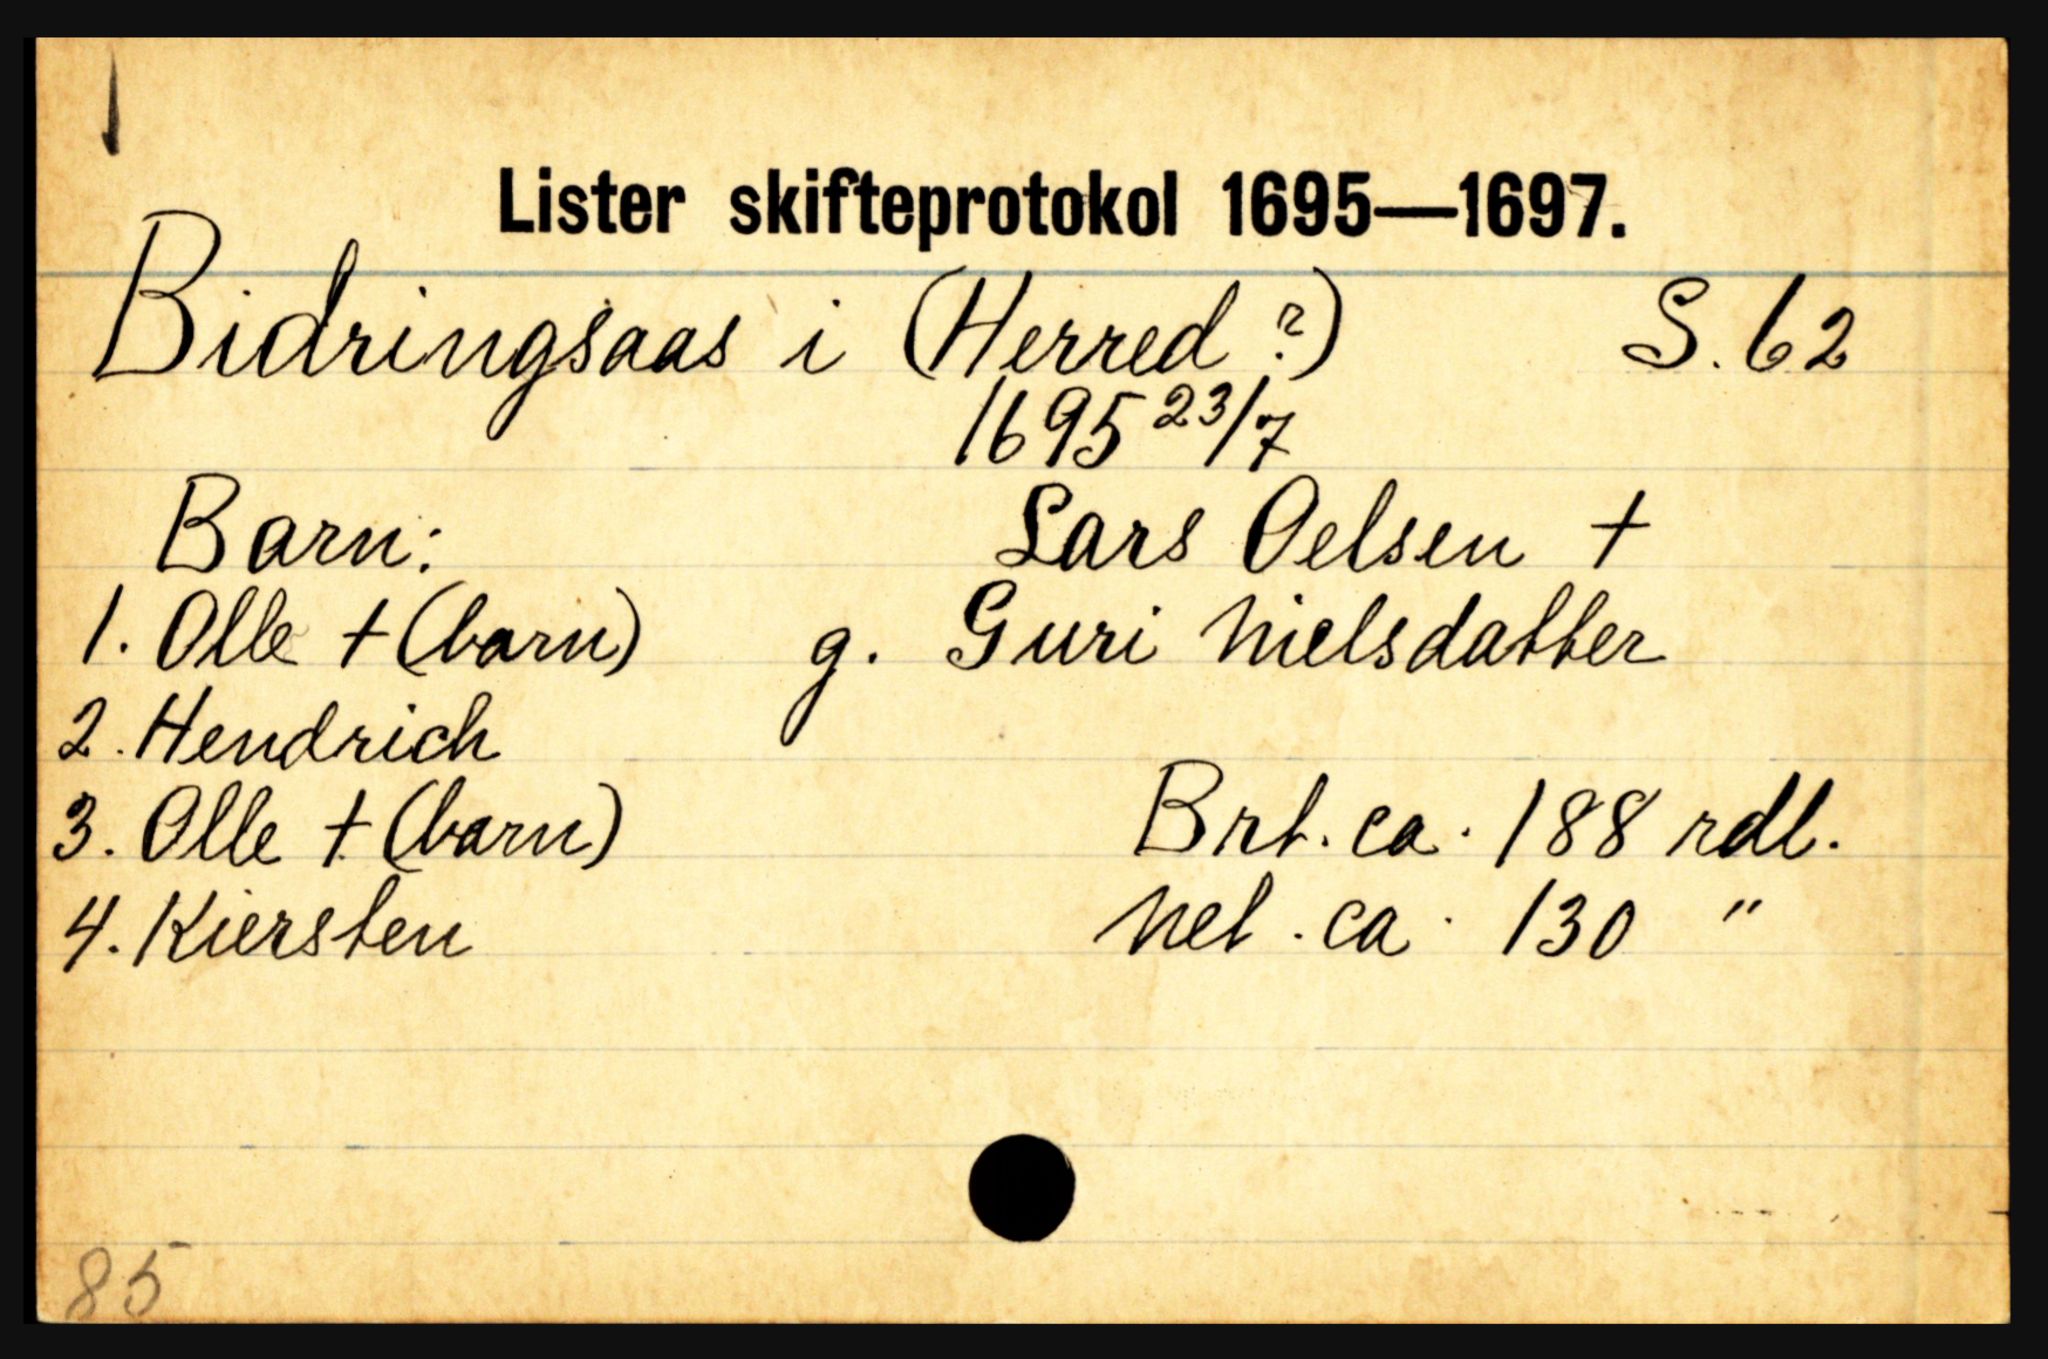 Lister skifteprotokol 1695—1697.
Bidringsaas i (Herred ?) S. 62
1695 23/7
Barn: Lars Oelsen +
1. Olle + (barn) g. Guri Nielsdatter
2. Hendrich
3. Olle + (barn) Brt. ca. 188 rdl.
4. Kiersten Net. ca. 130 "
85